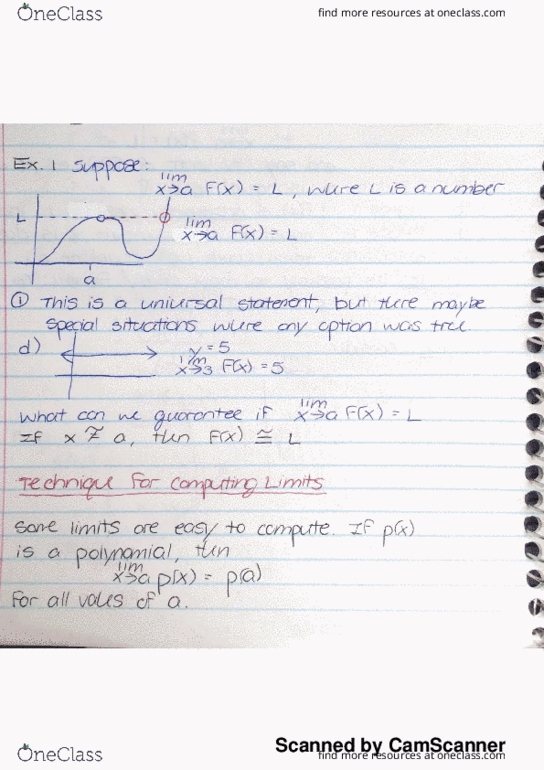 OneClass
find more resources at oneclass.com
Ex. 1 Suppose:
lim
x→a F(x) = L, wure L is a number
L
lim
x→a F(x) = L
a
① This is a uniursal statement, but there maybe
special situations wure any option was true
d)
y = 5
lim
x→3 F(x) = 5
What can we guarantee if lim
x→a F(x) = L
If x ≠ a, then F(x) ≅ L
Technique for Computing Limits
Some limits are easy to compute. If p(x)
is a polynomial, then
lim
x→a p(x) = p(a)
for all vales of a.
Scanned by CamScanner
OneClass
find more resources at oneclass.com